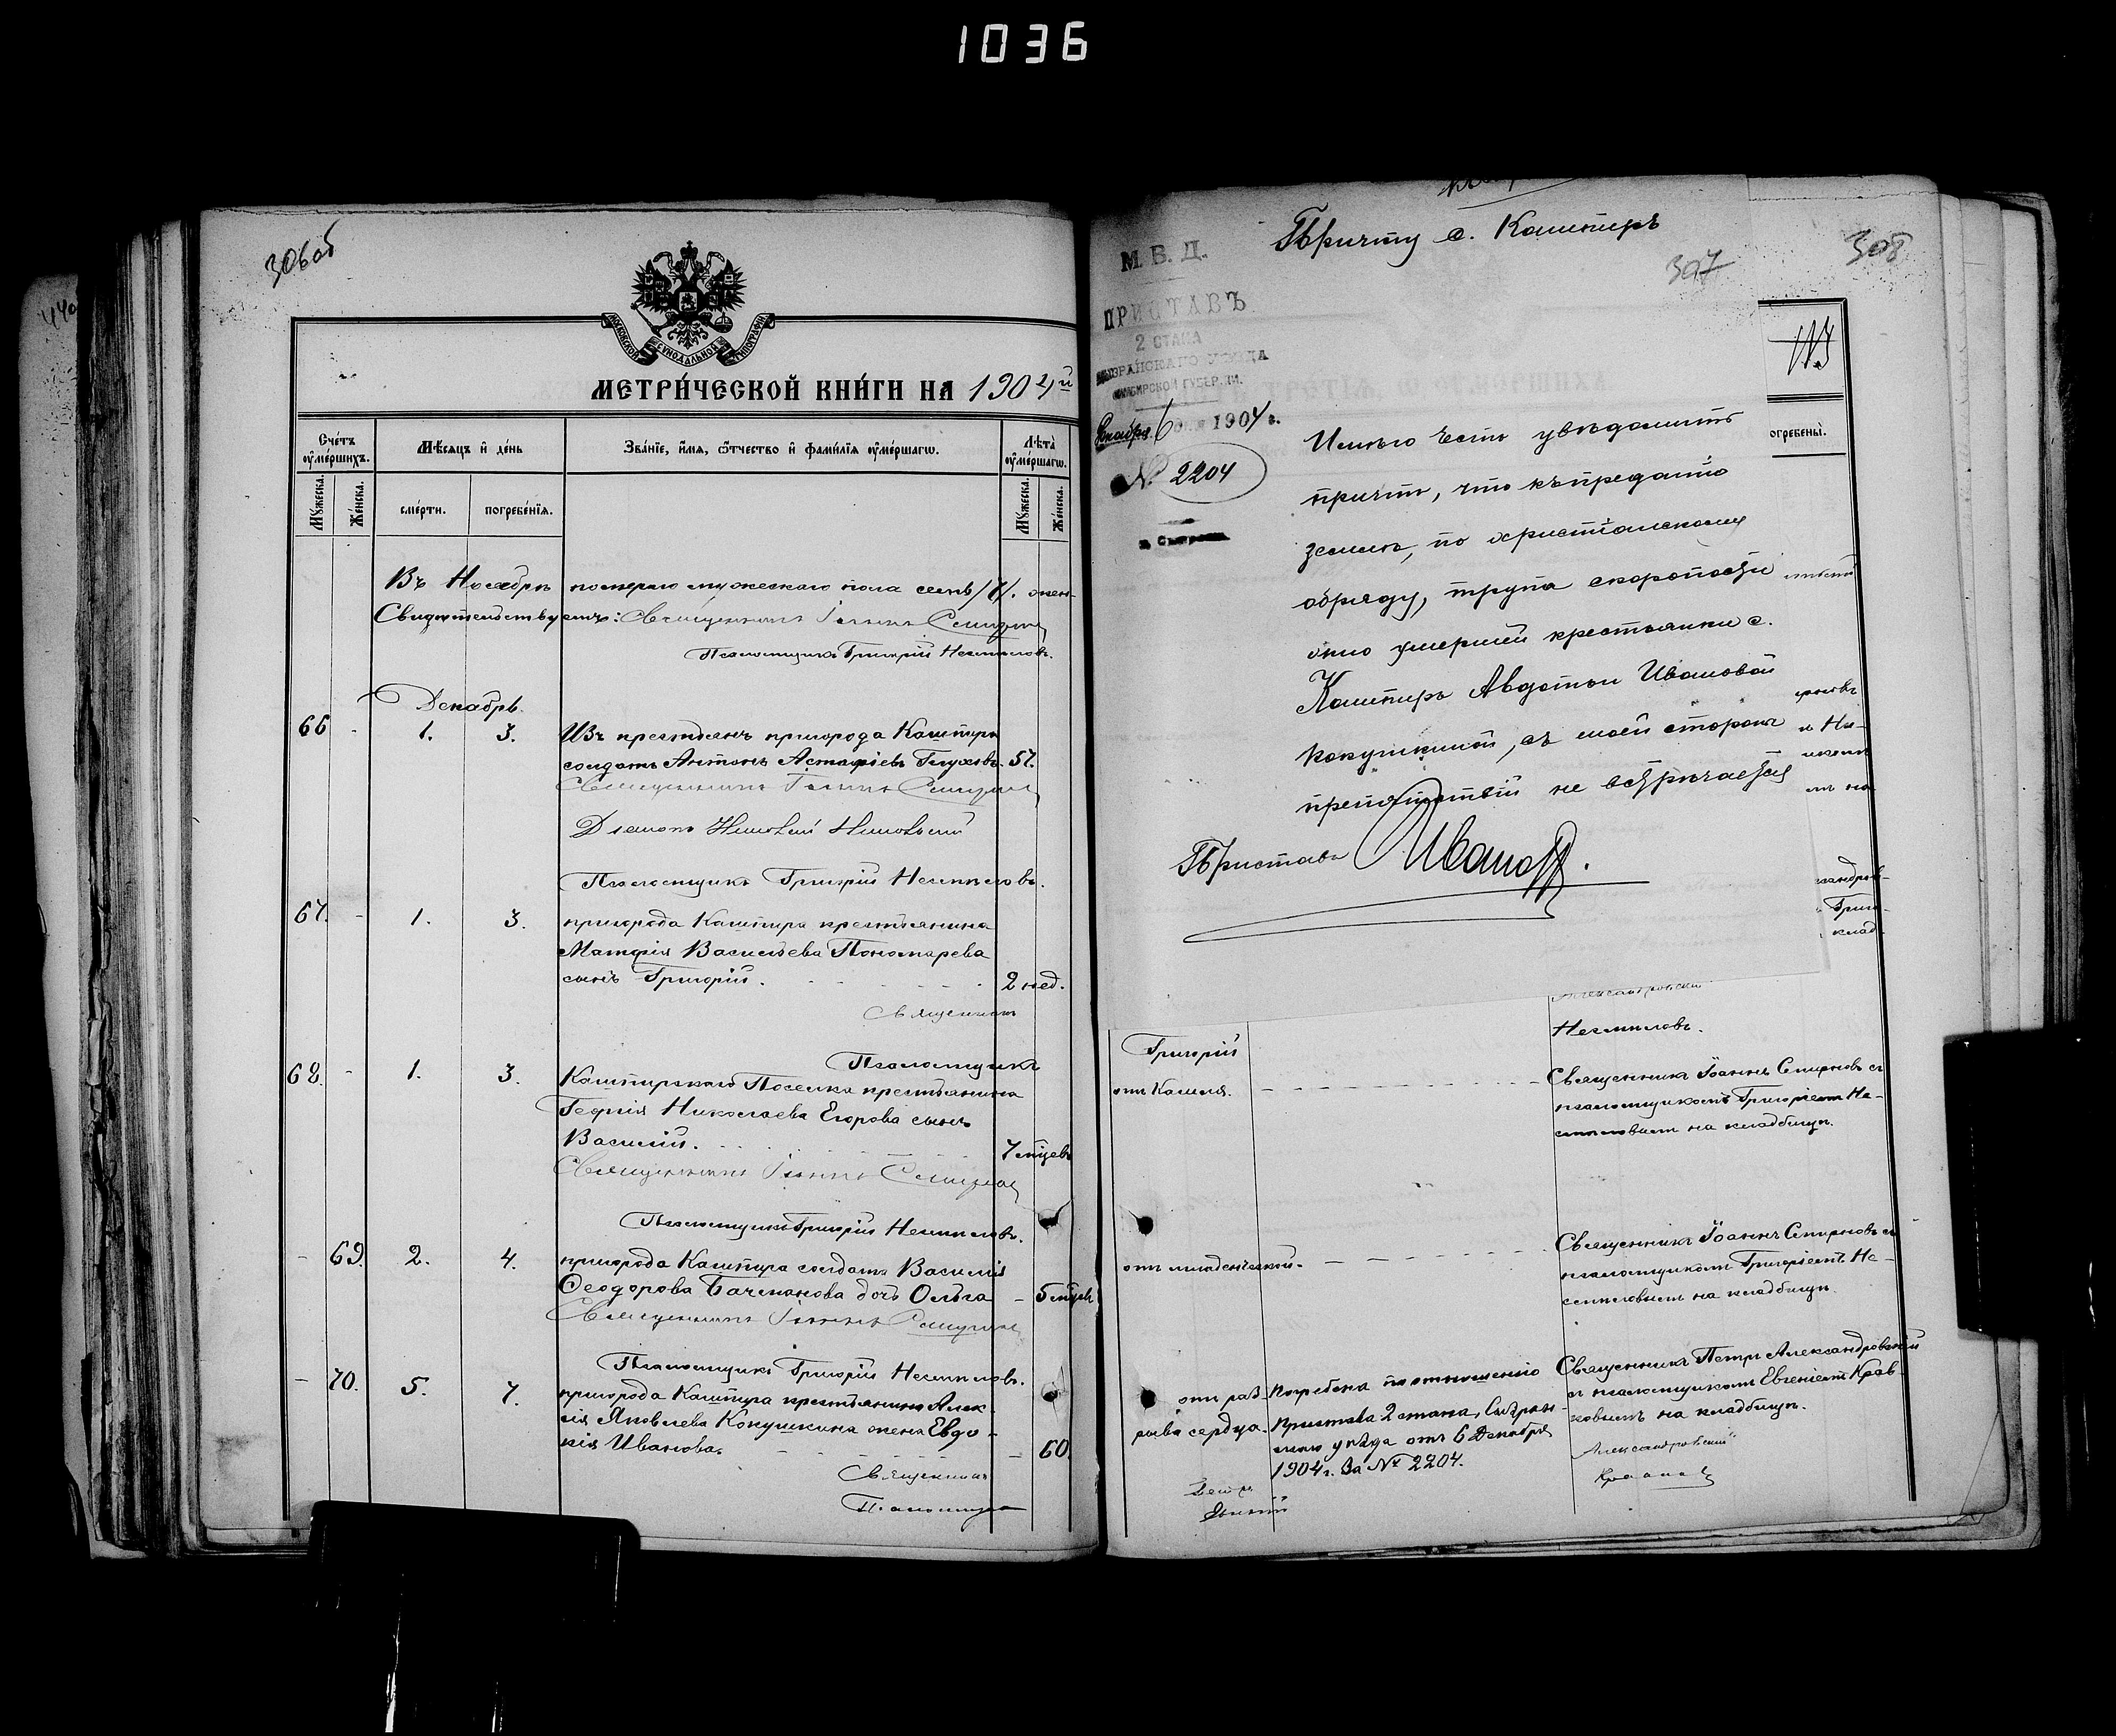 1036
306об
МОСКОВСКОЙ СѴНОДАЛЬНОЙ ТИПОГРАФІИ
МЕТРИ́ЧЕСКОЙ КНИ́ГИ НА 1904й
Сче́тъ ᲂу҆ме́ршихъ.
Мѣ́сяцъ и҆ де́нь
Зва́нїе, и҆́мя, ѻ҆́тчество и҆ фами́лїя ᲂу҆ме́ршагѡ.
Лѣ́та ᲂу҆ме́ршагѡ.
Мꙋ́жеска.
Же́нска.
сме́рти.
погребе́нїя.
Мꙋ́жеска.
Же́нска.
Въ Ноябрѣ померло мужескаго пола семь /7/. жен-
Свидѣтельствуемъ: Священникъ Іоаннъ Смирновъ
Псаломщикъ Григорій Несмѣловъ.
Декабрь
66 - 1. 3. Изъ крестьянъ пригорода Кашпира
солдатъ Антонъ Астафіевъ Глуховъ. 57.
Священникъ Іоаннъ Смирновъ
Діаконъ Николай
Псаломщикъ Григорій Несмѣловъ.
67. - 1. 3. пригорода Кашпира крестьянина
Матфія Васильева Пономарева
сынъ Григорій. 2 нед.
Священникъ
Псаломщикъ
68. - 1. 3. Кашпирскаго Поселка крестьянина
Георгія Николаева Егорова сынъ
Василій. 7 мцевъ
Священникъ Іоаннъ Смирновъ
Псаломщикъ Григорій Несмѣловъ.
- 69. 2. 4. пригорода Кашпира солдата Василія
Ѳеодорова Бачманова дочь Ольга - 5 мцевъ
Священникъ Іоаннъ Смирновъ
Псаломщикъ Григорій Несмѣловъ.
- 70. 5. 7. пригорода Кашпира крестьянина Алек-
сія Яковлева Кокушкина жена Евдо-
кія Иванова. - 60.
Священникъ
Псаломщикъ
Причту с. Кашпиръ
307
308
М. В. Д.
ПРИСТАВЪ
2 СТАНА
СЫЗРАНСКАГО УѢЗДА
СИМБИРСКОЙ ГУБЕРНІИ.
Декабря 6 дня 1904 г.
№ 2204
г. Сызрань.
113
огребены̀.
Имѣю честь увѣдомить
причтъ, что къ преданію
землѣ, по христіанскому
обряду, трупа скоропости
жно умершей крестьянки с.
Кашпиръ Авдотьи Ивановой
Кокушкиной, съ моей стороны
препятствій не встрѣчается
Приставъ Иванов.
Григорій
Несмѣловъ.
отъ Кашля. Священникъ Іоаннъ Смирновъ съ
псаломщикомъ Григоріемъ Не-
смѣловымъ на кладбищѣ.
отъ младенческой. Священникъ Іоаннъ Смирновъ съ
псаломщикомъ Григоріемъ Не-
смѣловымъ на кладбищѣ.
отъ раз-
рыва сердца.
Погребена по отношенію
Пристава 2 стана, Сызран-
скаго уѣзда отъ 6 Декабря
1904 г. За № 2204.
Священникъ Петръ Александровскій
съ псаломщикомъ Евгеніемъ Крав-
ковымъ на кладбищѣ.
Александровскій